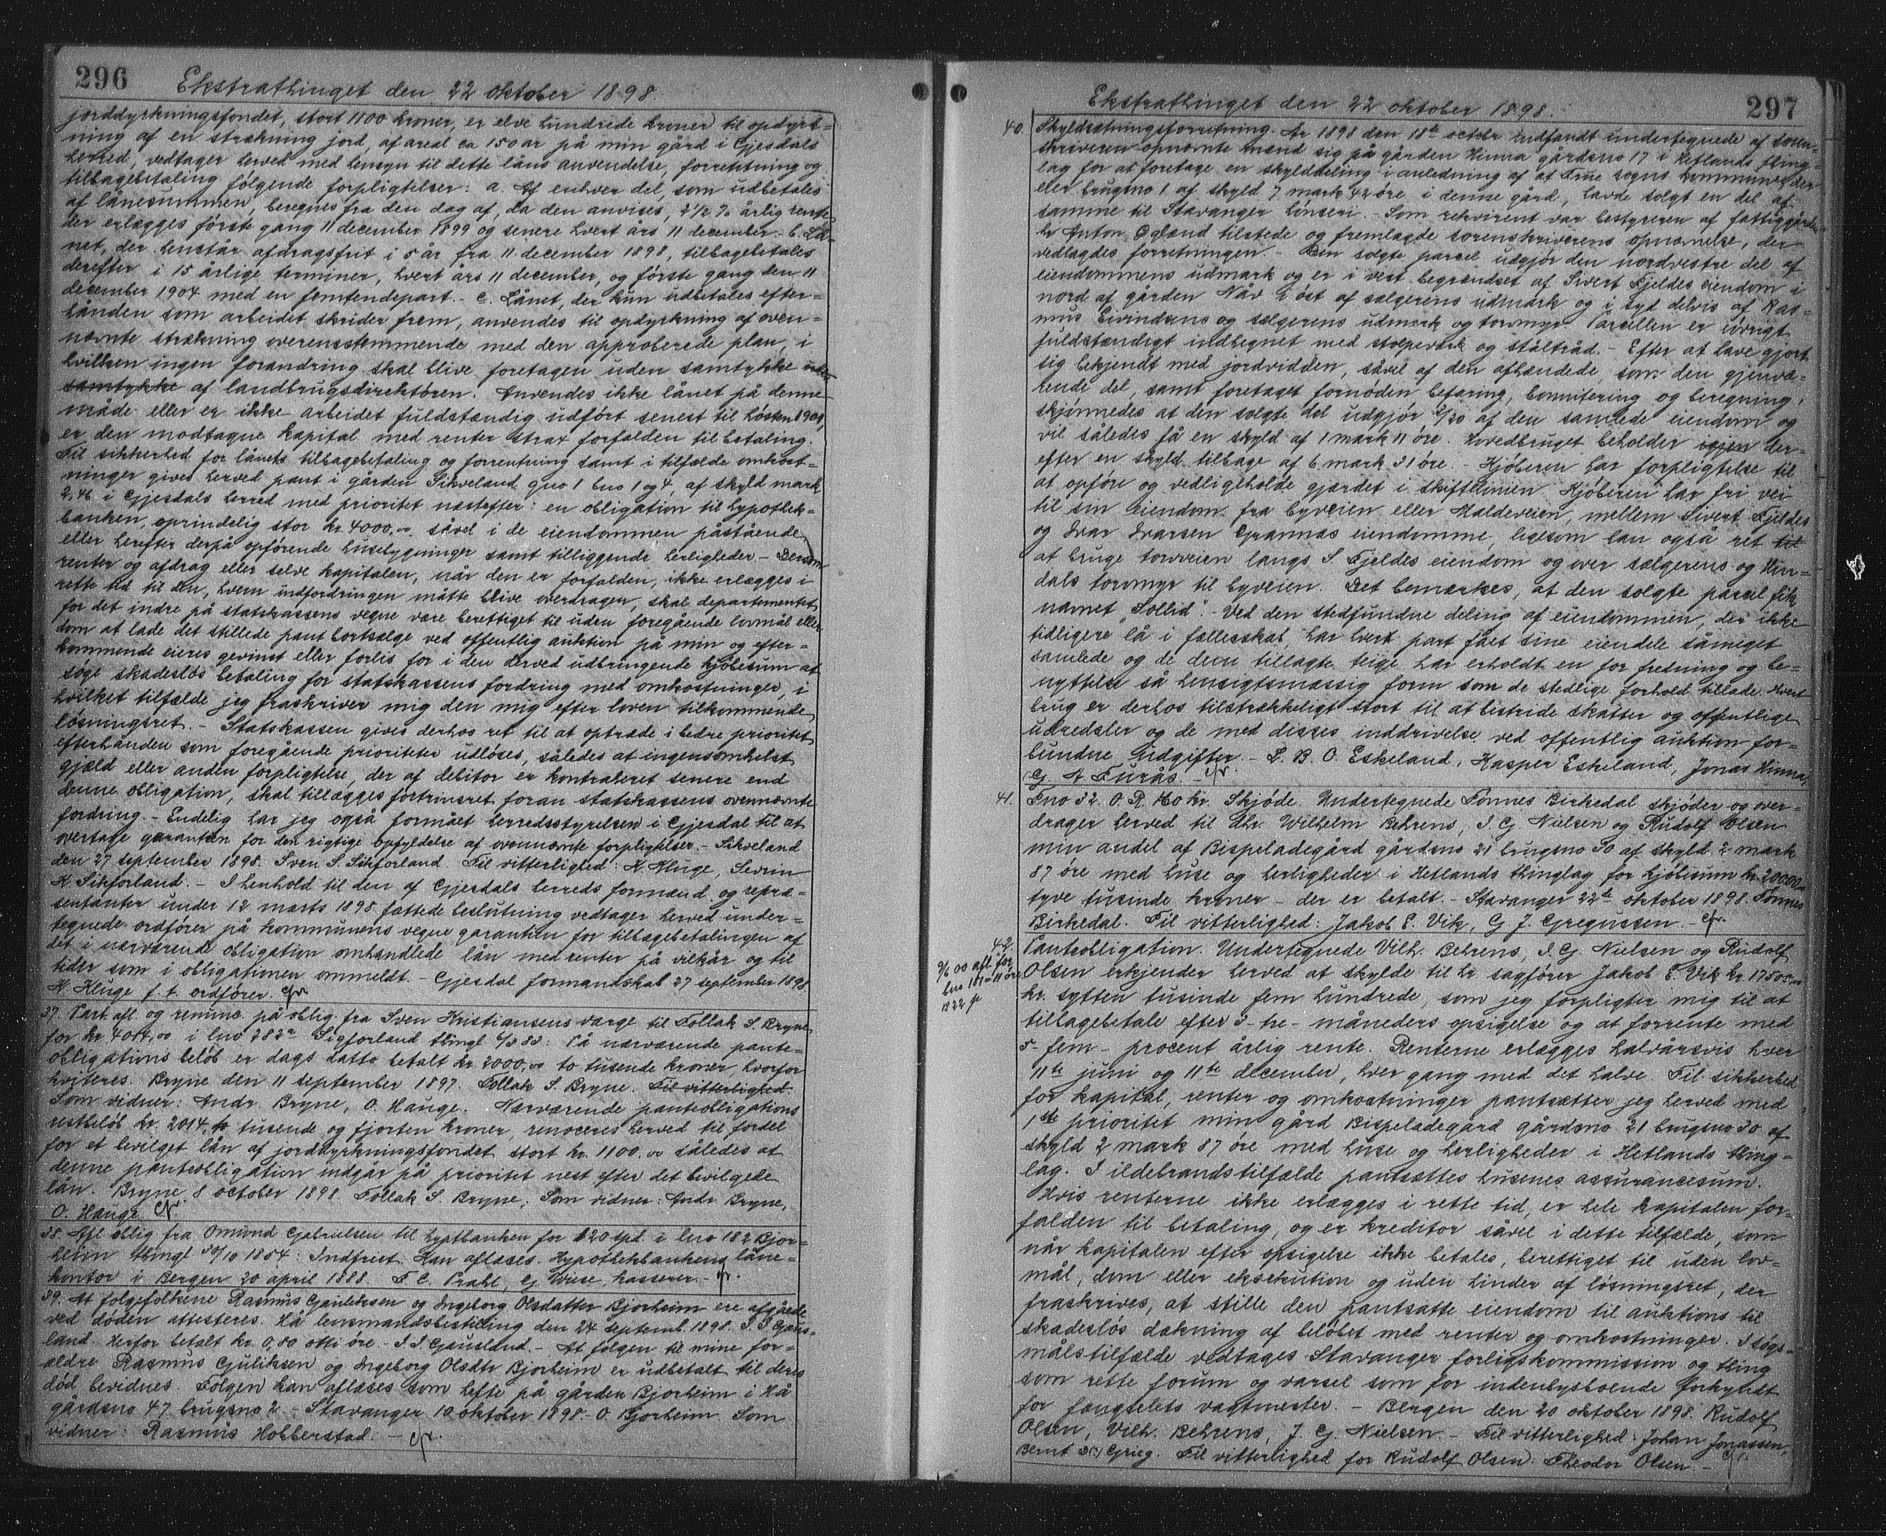 296
Ekstrathinget den 22 oktober 1898.
jorddyrkningsfondet, stort 1100 kroner, er elve hundrede kroner til opdyrk-
ning af en strækning jord, af areal ca 150 ar på min gård i Gjesdals
herred, vedtager herved med hensyn til dette låns anvendelse, forrentning og
tilbagebetaling følgende forpligtelser: a. Af enhver del, som udbetales
af lånesummen, beregnes fra den dag af, da den anvises, 4 1/2 % årlig rente
der erlægges første gang 11 december 1899 og senere hvert års 11 december. - b. Lå-
net, der henstår afdragsfrit i 5 år fra 11 december 1898, tilbagebetales
derefter i 15 årlige terminer, hvert års 11 december, og første gang den 11
december 1904 med en femtendepart. - c. Lånet, der kun udbetales efter-
hånden som arbeidet skrider frem, anvendes til opdyrkning af oven-
nævnte strækning overensstemmende med den approberede plan, i
hvilken ingen forandring skal blive foretagen uden samtykke
samtykke af landbrugsdirektøren. Anvendes ikke lånet på denne
måde eller er ikke arbeidet fuldstændig udført senest til høsten 1904,
er den modtagne kapital med renter strax forfalden til betaling.
Til sikkerhed for lånets tilbagebetaling og forrentning samt i tilfælde omkost-
ninger gives herved pant i gården Sikveland gno 1 bno 1 og 4, af skyld mark
2,46 i Gjesdals herred med prioritet næstefter: en obligation til hypothek-
banken, oprindelig stor kr. 4000,00 såvel i de eiendommen påstående
eller herefter derpå opførende husebygninger samt tilliggende herligheder. - Dersom
renter og afdrag eller selve kapitalen, når den er forfalden, ikke erlægges i
rette tid til den, hvem indfordringen måtte blive overdragen, skal departementet
for det indre på statskassens vegne være berettiget til uden foregående lovmål eller
dom at lade det stillede pant bortsælge ved offentlig auktion på min og efter-
kommende eieres gevinst eller forlis for i den derved udbringende kjøbesum at
søge skadesløs betaling for statskassens fordring med omkostninger, i
hvilket tilfælde jeg fraskriver mig den mig efter loven tilkommende
løsningsret. - Statskassen gives derhos ret til at optræde i bedre prioritet
efterhånden som foregående prioriteter udløses, således at ingensomhelst
gjæld eller anden forpligtelse, der af debitor er kontraheret senere end
denne obligation, skal tillægges fortrinsret foran statskassens ovennævnte
fordring. - Endelig har jeg også formået herredsstyrelsen i Gjesdal til at
overtage garantien for den rigtige opfyldelse af ovennævnte forpligtelser. - Sikveland
den 27 september 1898. Sven S. Sikforland. Til vitterlighed: K. Kluge, Sevrin
K. Sikforland. - I henhold til den af Gjesdals herreds formænd og repræ-
sentanter under 12 marts 1898 fattede beslutning vedtager herved under-
tegnede ordfører på kommunens vegne garantien for tilbagebetalingen af
det i nærværende obligation omhandlede lån med renter på vilkår og til
tider som i obligationen ommeldt. - Gjesdal formandskab 27 september 1898
K. Kluge f. t. ordfører.
37. Part. afl. og remine. på oblig fra Sven Kristiansens værge til Tollak S. Bryne
for kr 4014,00 i bno 282 Sigforland thingl 6/3 83: På nærværende pante-
obligations beløb er dags datto betalt kr. 2000,00 to tusende kroner, hvorfor
kviteres. Bryne den 11 september 1897. Tollak S. Bryne. Til vitterlighed.
Som vidner: Andr. Bryne, O. Hauge. Nærværende panteobligations
restbeløb kr. 2014, to tusende og fjorten kroner, renoceres herved til fordel
for et bevilget lån af jorddyrkningsfondet stort kr. 1100,00 således at
denne panteobligation indgår på prioritet nest efter det bevilgede
lån. Bryne 8 october 1898. Tollak S. Bryne. Som vidner: Andr. Bryne,
O. Hauge.
38. Afl. oblig fra Omund Gabrielsen til hyptbanken for 620 spd. i bno 182 Bjor-
heim thingl 30/10 1854: Indfriet. Kan aflæses. Hypothekbankens låne-
kontor i Bergen 20 april 1888. F. C. Prahl, G Wiese, kasserer. -
39. At folgefolkene Rasmus Gauliksen og Ingeborg Olsdatter Bjorheim ere afgåede
ved døden attesteres. Hå lensmandsbestilling den 24 septemb. 1898. S. S. Gaus-
land. Herfor betalt kr. 0,80 otti øre. - S. S. Gausland. - At følgen til mine for-
ældre Rasmus Gjuliksen og Ingeborg Olsdtr Bjorheim er udbetalt til deres
død bevidnes. Følgen kan aflæses som hefte på gården Bjorheim i Hå
gårdsno 47 brugsno 2. - Stavanger 10 oktober 1898. O. Bjorheim. Som
vidner: Rasmus Hobberstad. -
297
Ekstrathinget den 22 oktober 1898.
40. Skyldsætningsforretning. År 1898 den 18de octobr indfandt undertegnede af soren-
skriveren opnævnte mænd sig på gården Hinna gårdsno 17 i Hetlands thing-
lag for at foretage en skylddeling i anledning af at Frue sogns kommune, der
eier brugsno 1 af skyld 7 mark 42 øre i denne gård, havde solgt en del af
samme til Stavanger hønseri. - Som rekvirent var bestyreren af fattiggården
hr Anton Egland tilstede og fremlagde sorenskriverens opnævnelse, der
vedlagdes forretningen. - Den solgte parcel udgjør den nordvestre del af
eiendommens udmark og er i vest begrændset af Sivert Fjeldes eiendom i
nord af gården Nåv i øst af sælgerens udmark og i syd delvis af Ras-
mus Eivindsens og sælgerens udmark og torvmyr. Parcellen er iøvrigt
fuldstændigt indhegnet med stolpeverk og ståltråd. - Efter at have gjort
sig bekjendt med jordvidden, såvel af den afhændede som den gjenvæ-
rende del, samt foretaget fornøden befaring, bonnitering og beregning,
skjønnedes at den solgte del udgjør 3/20 af den samlede eiendom og
vil således få en skyld af 1 mark 11 øre. Hovedbruget beholder igjen der-
efter en skyld tilbage af 6 mark 31 øre. - Kjøberen har forpligtelse til
at opføre og vedligeholde gjærdet i skiftelinien. Kjøberen har fri vei
til sin eiendom fra byveien eller Haldeveien, mellem Sivert Fjeldes
og Ivar Ivarsen Grannæs eiendomme, ligesom han også ret til
at bruge torvveien langs S. Fjeldes eiendom og over sælgerens og Hin-
dals torvmyr til byveien. Det bemærkes, at den solgte parsel fik
navnet "Sollid". - Ved den stedfundne deling af eiendommen, der ikke
tidligere lå i fællesskab, har hvert part fået sine eiendele såmeget
samlede og de dem tillagte teige har erholdt en for fredning og be-
nyttelse så hensigtsmæssig form som de stedlige forhold tillade. Hvert
brug er derhos tilstrækkeligt stort til at bestride skatter og offentlige
udredsler og de med disses inddrivelse ved offentlig auktion for-
bundne udgifter. - L. B. O. Eskeland, Kasper Eskeland, Jonas Hinna,
G. N. Furås. -
41. Fno 32. O. R. 160 kr. Skjøde. Undertegnede Tønnes Birkedal skjøder og over-
drager herved til Hr. Wilhelm Behrens, I. G. Nielsen og Rudolf Olsen
min andel af Bispeladegård gårdsno 21 brugsno 30 af skyld 2 mark
87 øre med huse og herligheder i Hetlands thinglag for kjøbesum kr. 20000
tyve tusinde kroner - der er betalt. - Stavanger 22de oktober 1898. Tønnes
Birkedal. Til vitterlighed: Jakob E. Vik, G J. Gregussen. -
42.
9/6 00 afl. for
Panteobligation. Undertegnede Vilh. Behrens, I. G. Nielsen og Rudolf
Olsen erkjender herved at skylde til hr. sagfører Jakob E. Vik kr. 17500,
kr. sytten tusinde fem hundrede, som jeg forpligter mig til at
tilbagebetale efter 3 - tre - måneders opsigelse og at forrente med
5 - fem - procent årlig rente. Renterne erlægges halvårsvis hver
11te juni og 11te december, hver gang med det halve. Til sikkerhed
for kapital, renter og omkostninger pantsætter jeg herved med
1ste prioritet min gård Bispeladegård gårdsno 21 brugsno 30 af
skyld 2 mark 87 øre med huse og herligheder i Hetlands thing-
lag. I ildebrandstilfælde pantsættes husenes assurancesum.
Hvis renterne ikke erlægges i rette tid, er hele kapitalen for-
falden til betaling, og er kreditor såvel i dette tilfælde, som
når kapitalen efter opsigelse ikke betales, berettiget til uden lov-
mål, dom eller eksekution og uden hinder af løsningsret, der
fraskrives, at stille den pantsatte eiendom til auktions til
skadesløs dækning af beløbet med renter og omkostninger. I søgs-
målstilfælde vedtages Stavanger forligskommission og thing
som rette forum og varsel som for indenbysboende forkyndt
for fængselets vagtmester. - Bergen den 20 oktober 1898. Rudolf
Olsen, Vilh. Behrens, J. G. Nielsen. - Til vitterlighed: Johan Jonassen,
Bernt Grieg. Til vitterlighed for Rudolf Olsen: Theodor Olsen. -